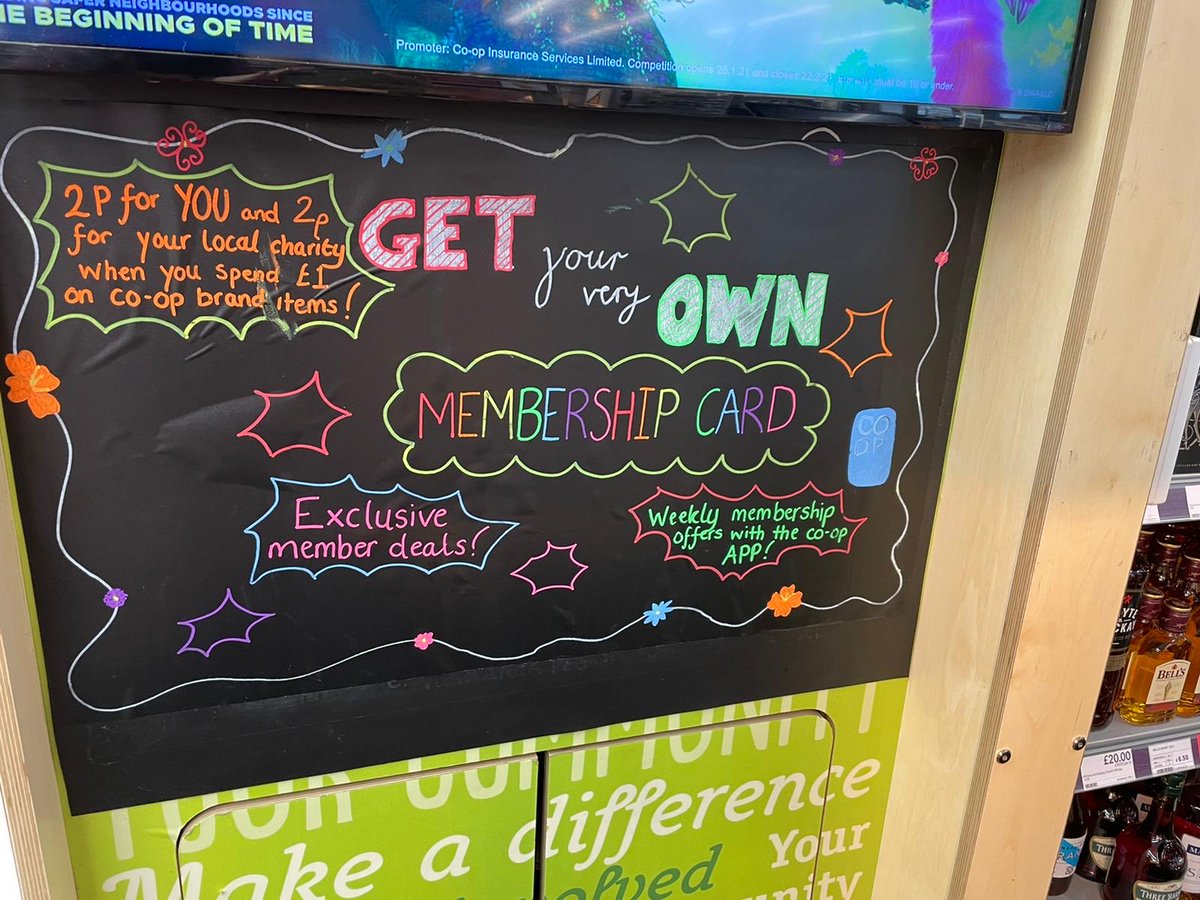 SAFER NEIGHBOURHOODS SINCE
THE BEGINNING OF TIME
Promoter: Co-op Insurance Services Limited. Competition opens 25.1.21 and closes 22.2.21. Entrants must be 18 or over.
2P for YOU and 2p
for your local charity
when you spend £1
on co-op brand items!
GET
your
very
OWN
MEMBERSHIP CARD
CO
OP
Exclusive
member deals!
Weekly membership
offers with the co-op
APP!
YOUR COMMUNITY
Make a difference
Your
BELL'S
£20.00
£6.50
THREE
THREE